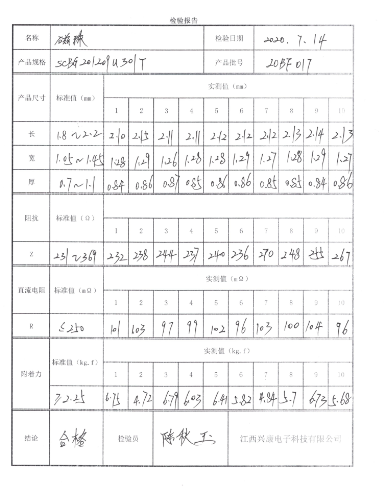 检验报告
名称 磁珠 检验日期 2020.7.14
产品规格 SCBG201209U301T 产品批号 20BF017
产品尺寸 标准值(mm) 实测值(mm)
1 2 3 4 5 6 7 8 9 10
长 1.8~2.2 2.10 2.15 2.11 2.11 2.12 2.12 2.12 2.13 2.14 2.13
宽 1.05~1.45 1.28 1.29 1.26 1.28 1.28 1.29 1.27 1.28 1.29 1.27
厚 0.7~1.1 0.84 0.86 0.87 0.85 0.86 0.86 0.85 0.85 0.84 0.86
阻抗 标准值(Ω) 实测值(Ω)
1 2 3 4 5 6 7 8 9 10
Z 231~369 232 238 244 237 240 236 270 248 255 267
直流电阻 标准值(mΩ) 实测值(mΩ)
1 2 3 4 5 6 7 8 9 10
R ≤250 101 103 97 99 102 96 103 100 104 96
附着力 标准值(kg.f) 实测值(kg.f)
1 2 3 4 5 6 7 8 9 10
≥2.25 6.75 4.72 6.79 6.03 6.41 5.82 4.84 5.7 6.73 5.68
结论 合格 检验员 陈秋玉 江西兴康电子科技有限公司